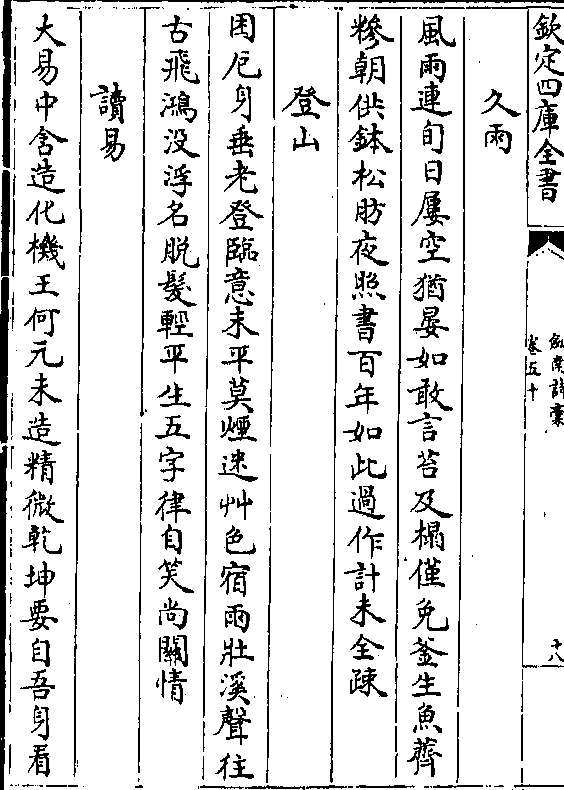 欽定四庫全書
劍南詩稾
卷五十
十八
久雨
風雨連旬日屢空猶晏如敢言苔及榻僅免釜生魚薺
糝朝供鉢松肪夜照書百年如此過作計未全疎
登山
困戹身垂老登臨意未平莫煙迷艸色宿雨壯溪聲往
古飛鴻没浮名脱髮輕平生五字律自笑尚關情
讀易
大易中含造化機王何元未造精微乾坤要自吾身看